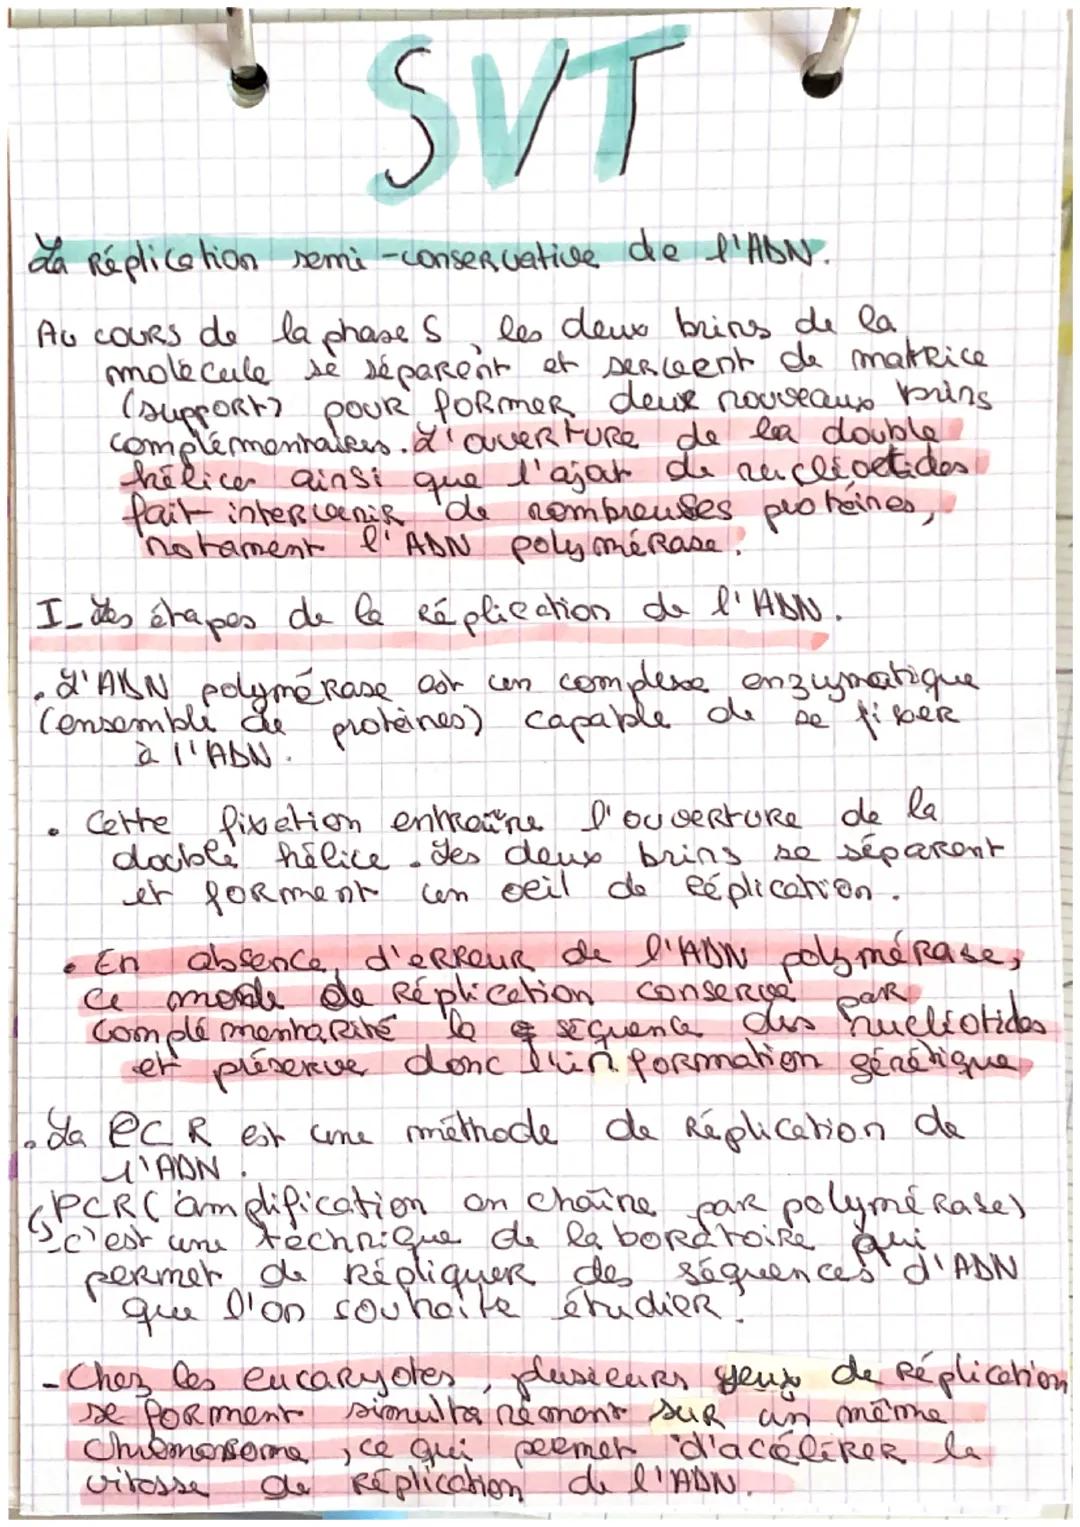 SVT
La Réplication semi-conservative de l'ADN.
Au cours de la phase S, les deux brins de la
molécule se séparent et servent de matrice
(support) pour former deux nouveaux brins
complémentaires. L'ouverture de la double
hélice ainsi que l'ajout de nucléotides
fait intervenir de nombreuses protéines,
notament l'ADN polymérase.
I_ Les étapes de la réplication de l'ADN.
. L'ADN polymérase est un complexe enzymatique
(ensemble de protéines) capable de se fixer
à l'ADN.
• Cette fixation entraîne l'ouverture de la
double hélice. Les deux brins se séparent
et forment un oeil de réplication.
• En absence d'erreur de l'ADN polymérase,
ce mode de Réplication conserve par
complémentarité la séquence des nucléotides
et préserve donc l'information génétique
. La PCR est une méthode de Réplication de
l'ADN.
↳ PCR (amplification en chaîne par polymérase)
- c'est une technique de laboratoire qui
permet de Répliquer des séquences d'ADN
que l'on souhaite étudier.
- Chez les eucaryotes, plusieurs yeux de Réplication
se forment simultanément sur un même
chromosome, ce qui permet d'accélérer la
vitesse de Réplication de l'ADN.